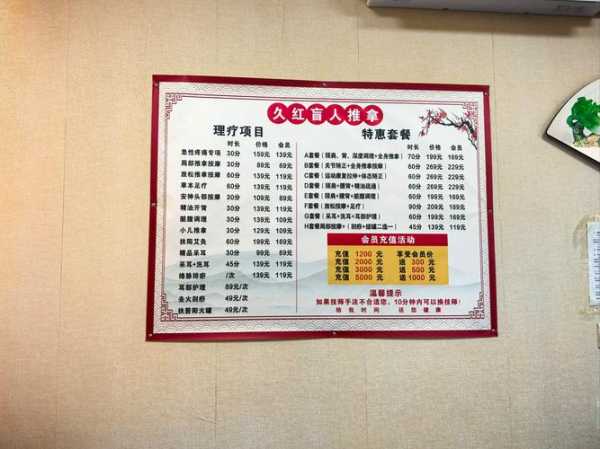 久红盲人推拿
理疗项目
时长 价格 会员
急性疼痛专项 30分 159元 139元
局部推拿按摩 30分 89元 69元
放松推拿按摩 60分 139元 119元
草本足疗 60分 139元 119元
安神头部按摩 30分 89元 69元
精油开背 30分 139元 119元
脏腑调理 30分 139元 109元
小儿推拿 30分 129元 109元
扶阳艾灸 60分 199元 169元
精品采耳 30分 99元 69元
采耳+洗耳 45分 139元 119元
络脉排瘀 /次 139元 119元
耳部护理 89元/次
去火刮痧 49元/次
扶阳火罐 49元/次
特惠套餐
时长 价格 会员
A套餐（颈肩、背、深度调理+全身推拿） 70分 199元 169元
B套餐（关节矫正+全身推拿） 60分 269元 229元
C套餐（运动康复拉伸+体态矫正） 60分 269元 229元
D套餐（颈肩+腰背+精油疏通） 60分 269元 229元
E套餐（颈肩+腰背+脏腑调理） 60分 199元 169元
F套餐（放松按摩+足疗） 90分 209元 189元
G套餐（采耳+洗耳+耳部护理） 60分 199元 169元
H套餐局部按摩+（刮痧+拔罐二选一） 45分 139元 119元
会员充值活动
充值 1200 元 享受会员价
充值 2000 元 送 300 元
充值 3000 元 送 500 元
充值 5000 元 送 1000 元
温馨提示
如果技师手法不合适您，10分钟内可以换技师！
给我时间 还您健康